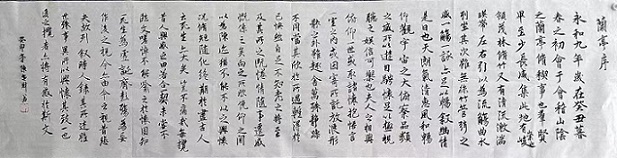 蘭亭序
永和九年歲在癸丑暮
春之初會于會稽山陰
之蘭亭脩稧事也羣賢
畢至少長咸集此地有
領茂林脩竹又有清流激湍
暎帶左右引以為流觴曲水
列坐其次雖無絲竹管弦之
盛一觴一詠亦足以暢叙幽情
是日也天朗氣清惠風和暢
仰觀宇宙之大俯察品類
之盛所以遊目騁懷足以極視
聽之娛信可樂也夫人之相與
俯仰一世或取諸懷抱悟言
一室之內或因寄所託放浪形
骸之外雖趣舍萬殊靜躁
不同當其欣於所遇輙得於
己怏然自足不知老之將至
及其所之既惓情隨事遷感
慨係之矣向之所欣俛仰之間
以為陳迹猶不能不以之興懷
況脩短隨化終期於盡古人
云死生亦大矣豈不痛哉每攬
昔人興感之由若合一契未嘗不
臨文嗟悼不能喻之於懷固知
一死生為虛誕齊彭殤為妄
作後之視今亦由今之視昔悲
夫故列叙時人錄其所述雖
世殊事異所以興懷其致一也
後之攬者亦將有感於斯文